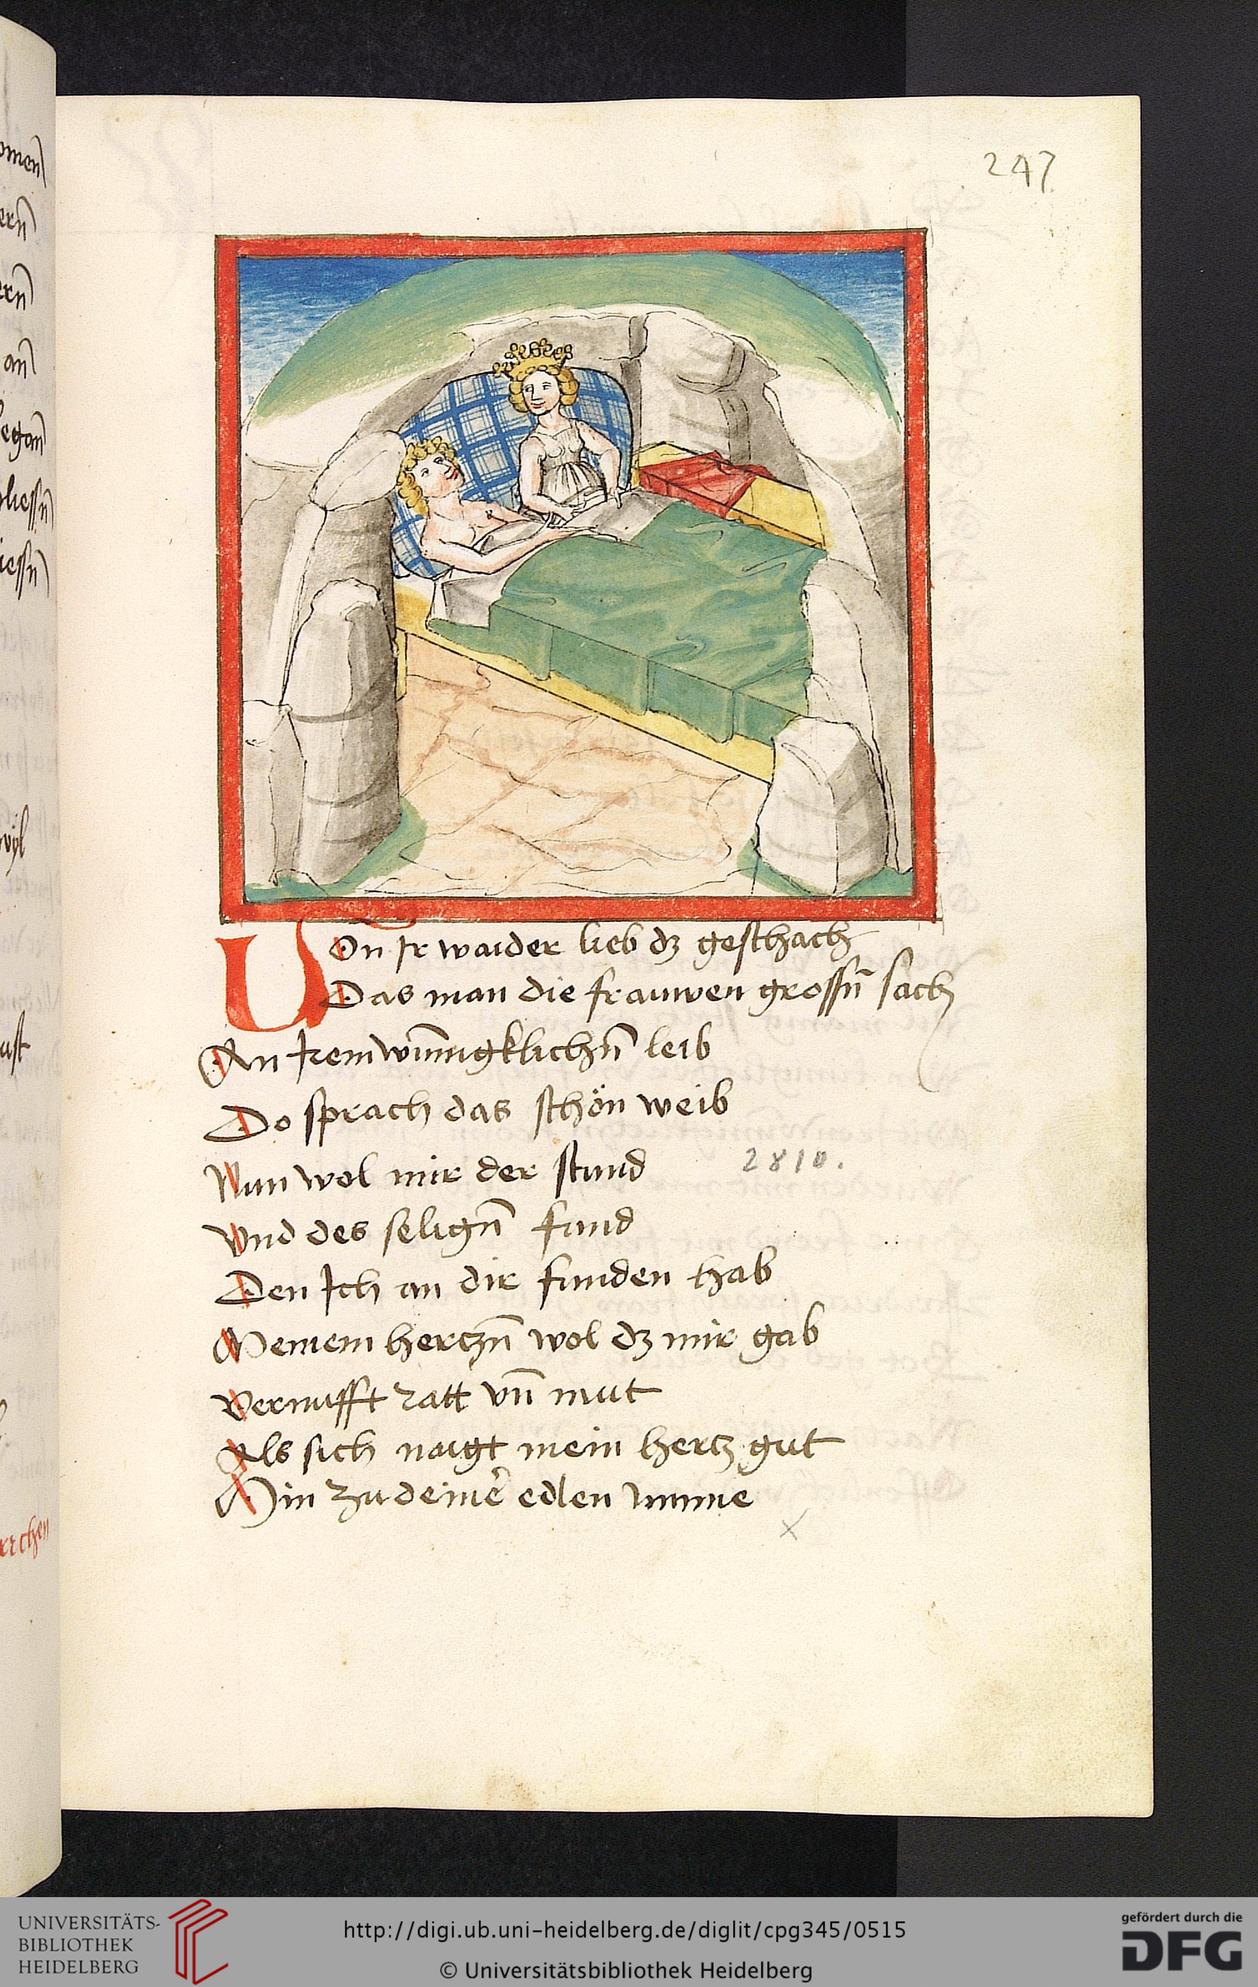 247
Von Jr waider lieb dz geschach
Das man die frauwen grossn̄ sach
An Jrem winnigklichn̄ leib
Do sprach das schön weib
Nun wol mir der stund
2810.
Vnd des selign̄ fund
Den Jch an dir funden hab
Meinem hertzn̄ wol dz mir gab
Vernufft ratt vn̄ mut
Als sich naigt mein hertz gut
Hin zu deiner edlen minne
x
omen
ern
ern
an
egan
liessn̄
iessn̄
wyl
ust
UNIVERSITÄTS-
BIBLIOTHEK
HEIDELBERG
http://digi.ub.uni-heidelberg.de/diglit/cpg345/0515
© Universitätsbibliothek Heidelberg
gefördert durch die
DFG